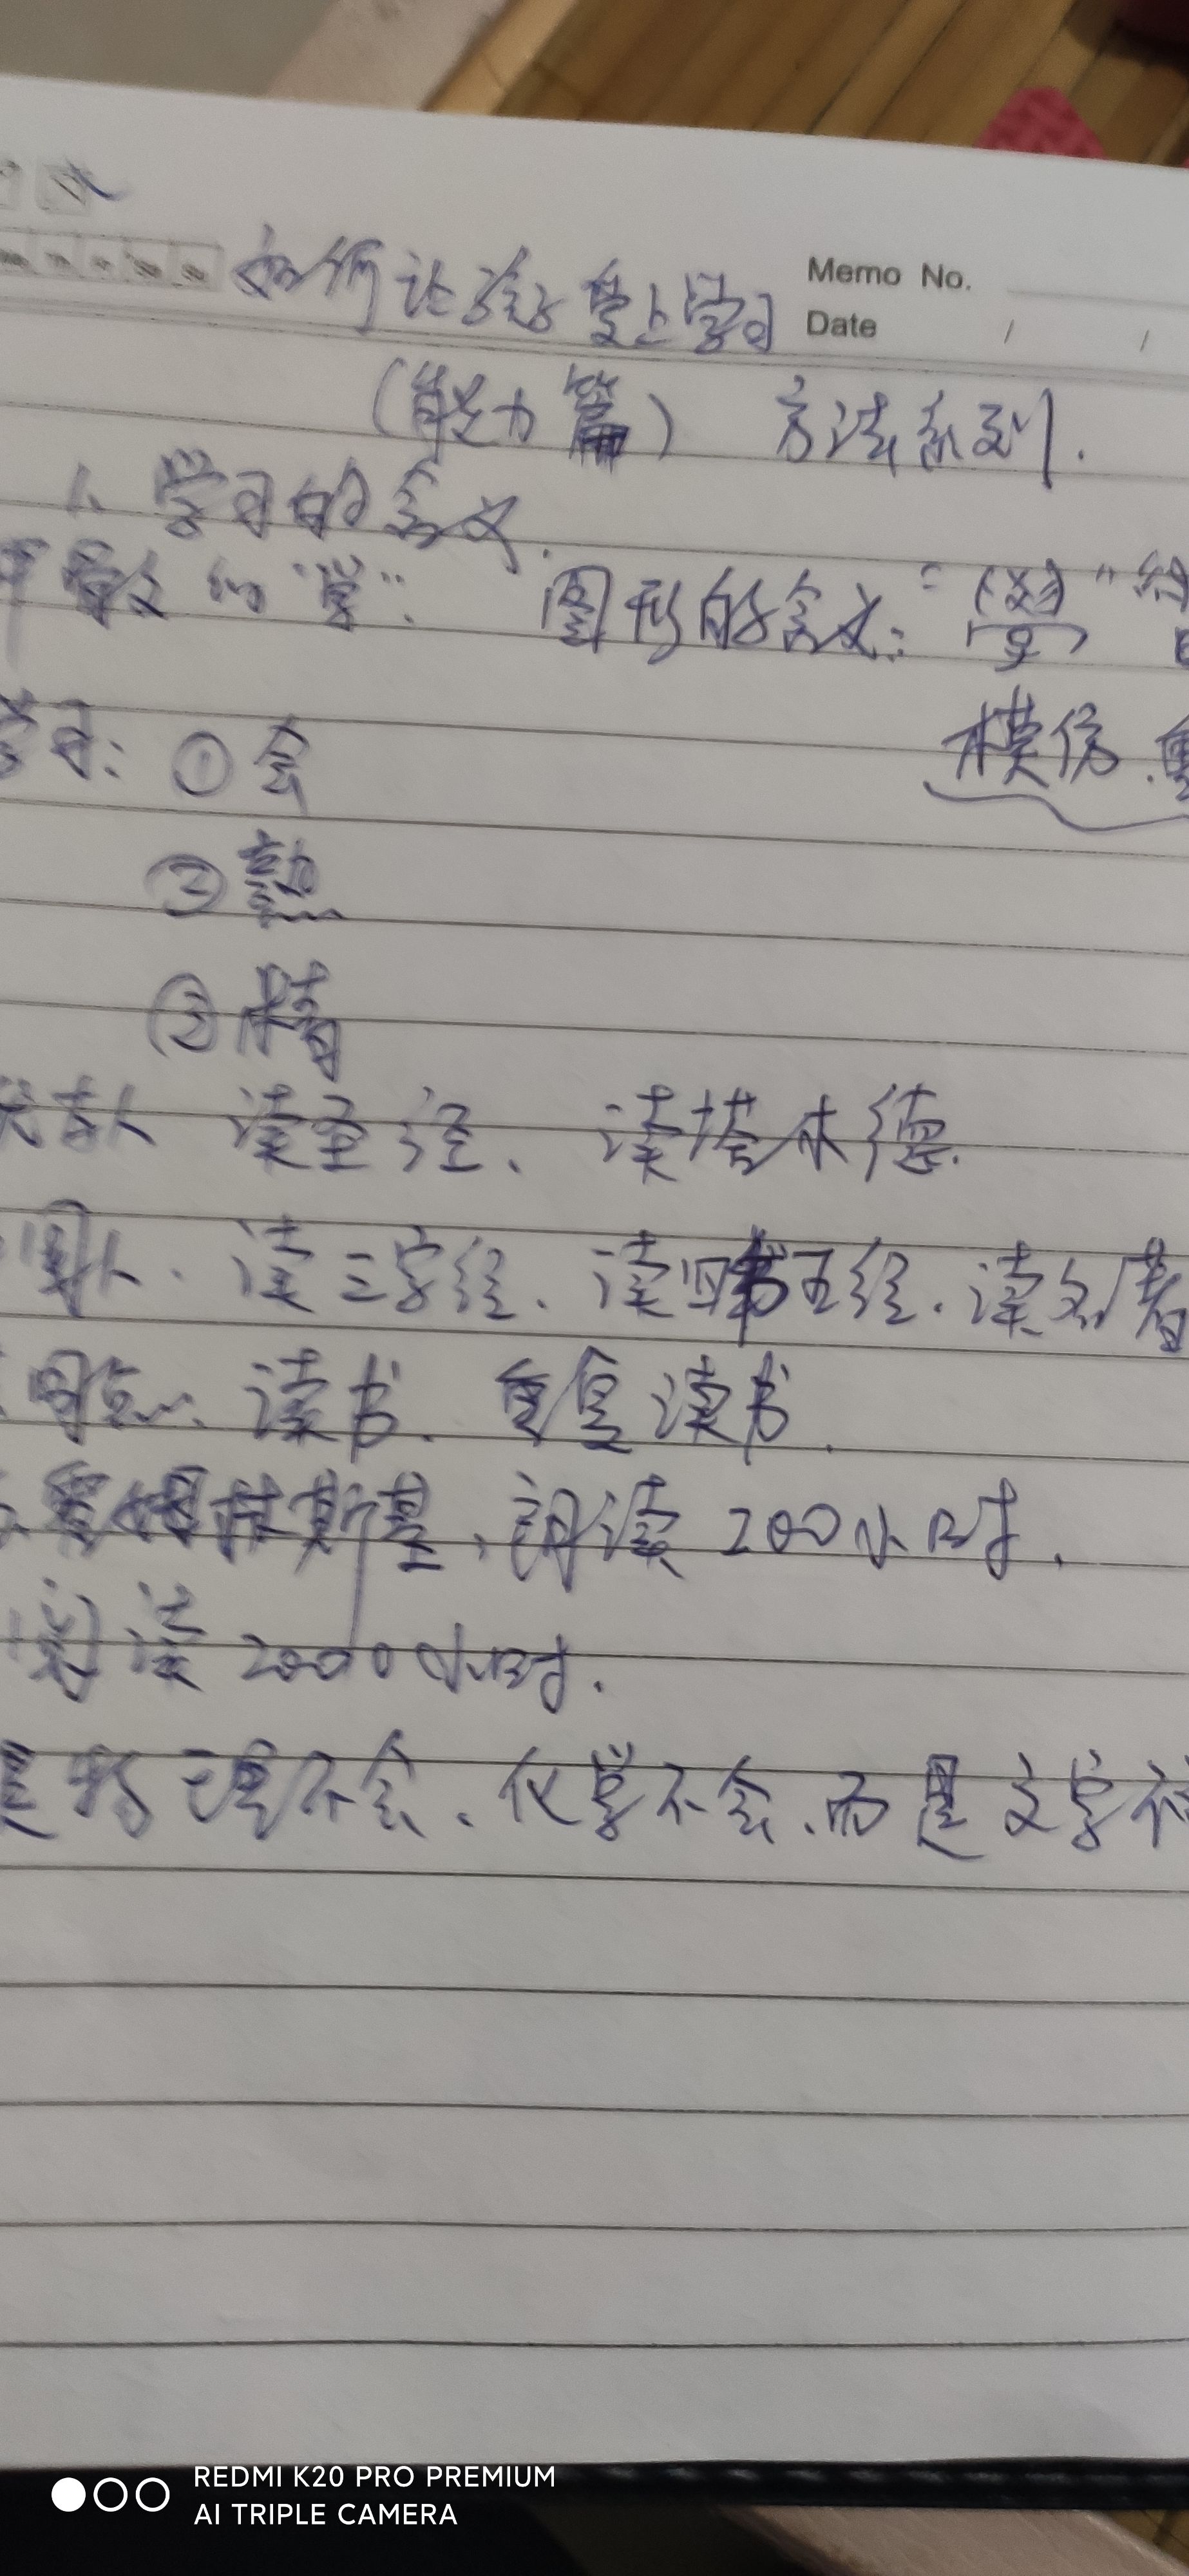 如何让孩子爱上学习
Memo No.
Date / /
(能力篇) 方法系列.
1、学习的含义.
甲骨文的“学”. 图形的含义:
模仿.
学习: ①会
②熟
③精
犹太人 读圣经、读塔木德.
国人、读三字经、读四书五经.读名著
读书、重复读书.
苏霍姆林斯基,朗读200小时.
阅读2000小时.
是物理不会、化学不会、而是文字
REDMI K20 PRO PREMIUM
AI TRIPLE CAMERA